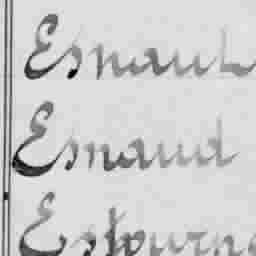 Esnaul
Esnaud
Estourne